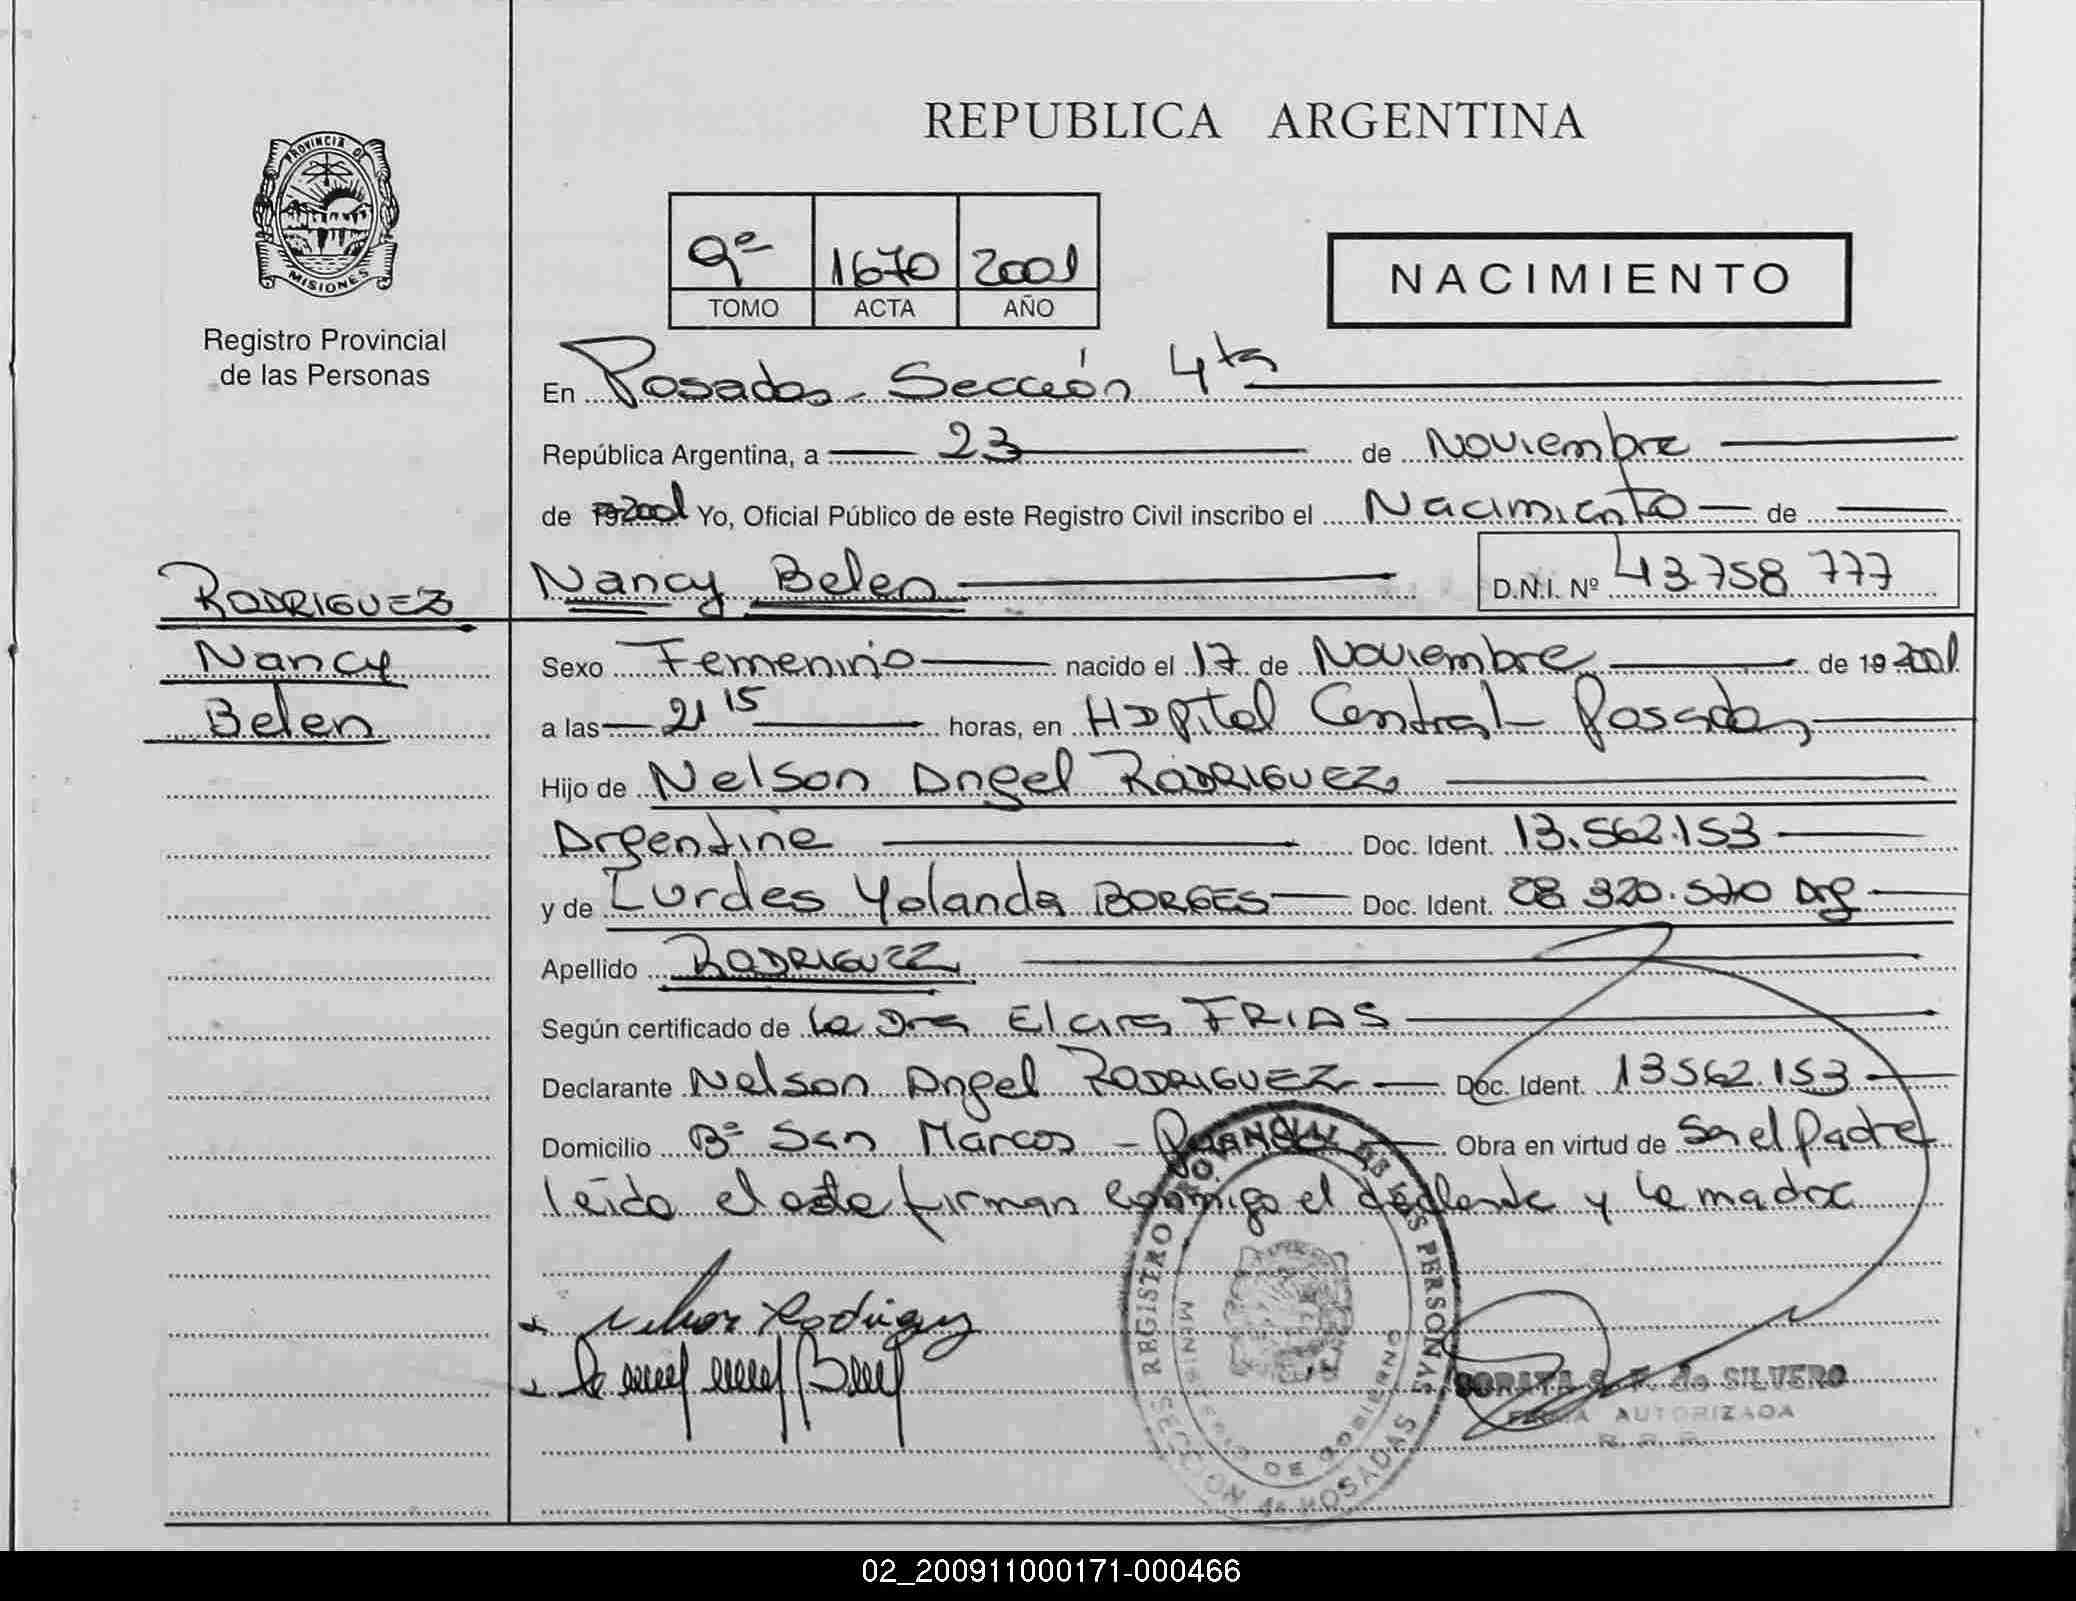 REPUBLICA ARGENTINA
PROVINCIA DE
MISIONES
Registro Provincial
de las Personas
9º 1670 2001
TOMO ACTA AÑO
NACIMIENTO
En Posadas - Sección 4ta
República Argentina, a 23 de Noviembre
de 192001 Yo, Oficial Público de este Registro Civil inscribo el Nacimiento de
RODRIGUEZ
Nancy
Belen
Nancy Belen D.N.I. Nº 43.758.777
Sexo Femenino nacido el 17 de Noviembre de 19 2001
a las 21 15 horas, en Hospital Central Posadas
Hijo de Nelson Angel RODRIGUEZ
Argentine Doc. Ident. 13.562.153
y de Lurdes Yolanda BORGES Doc. Ident. 28.320.570 Arg
Apellido RODRIGUEZ
Según certificado de la Dra FRIAS
Declarante Nelson Angel RODRIGUEZ Doc. Ident. 13562.153
Domicilio Bº San Marcos - Obra en virtud de Ser el Padre
leido el acta firman conmigo el y la madre
Nelson Rodriguez
REGISTRO PROVINCIAL DE LAS PERSONAS
MINISTERIO DE GOBIERNO
SECCION 4ª POSADAS
SORAYA S. F. de SILVERO
FIRMA AUTORIZADA
02_200911000171-000466